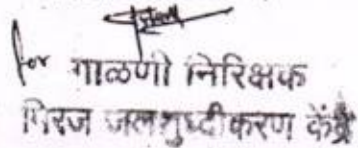 for गाळणी निरिक्षक
मिरज जलशुध्दीकरण केंद्र